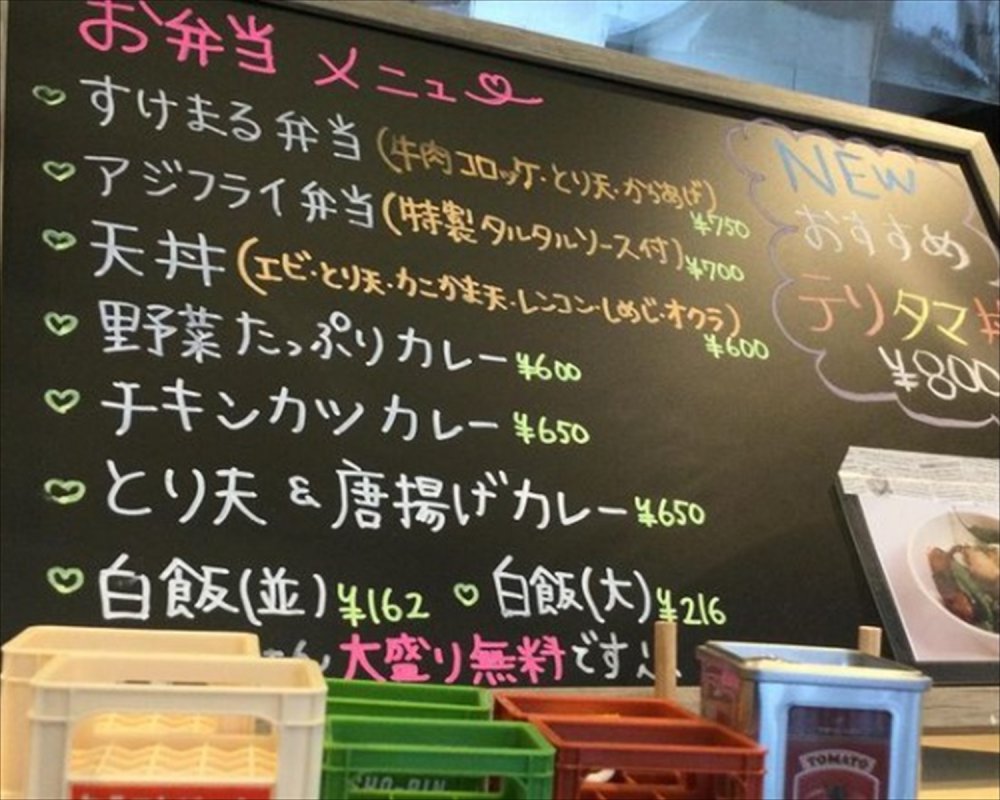 お弁当 メニュー
すけまる弁当 (牛肉コロッケ・とり天・からあげ) ¥750
アジフライ弁当 (特製タルタルソース付) ¥700
天丼 (エビ・とり天・カニかま天・レンコン・しめじ・オクラ) ¥600
野菜たっぷりカレー ¥600
チキンカツカレー ¥650
とり天 & 唐揚げカレー ¥650
白飯(並) ¥162 白飯(大) ¥216
大盛り無料です
NEW
おすすめ
テリタマ
¥800
TOMATO